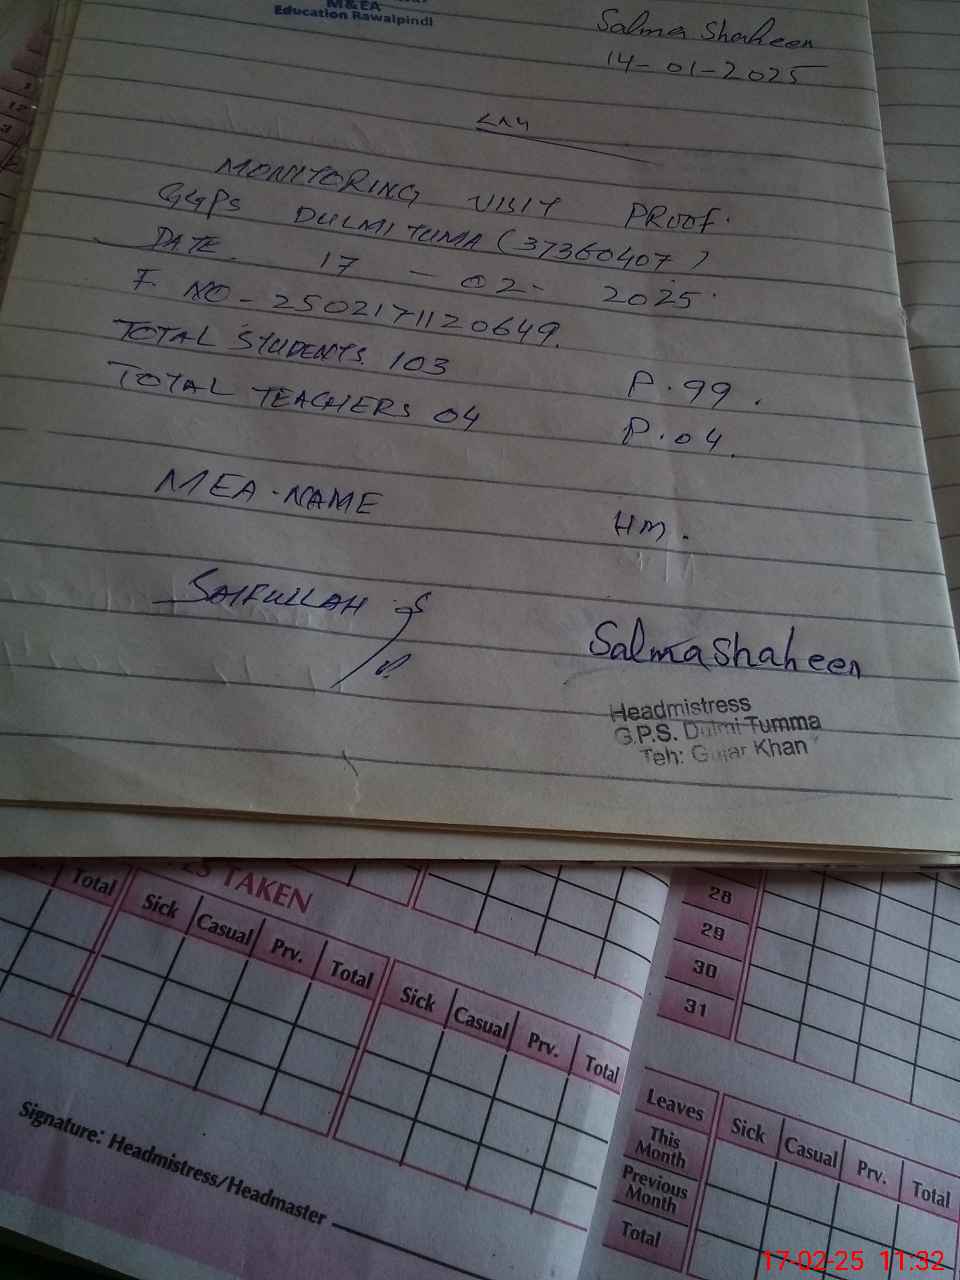 M&EA
Education Rawalpindi
Salma Shaheen
14-01-2025
MONITORING VISIT PROOF.
GGPS DULMI TUMA (37360407)
DATE. 17 - 02 - 2025.
F. NO - 2502171120649.
TOTAL STUDENTS. 103 P. 99.
TOTAL TEACHERS 04 P. 04.
MEA. NAME HM.
SAIFULLAH
Salma Shaheen
Headmistress
G.P.S. Dulmi Tumma
Teh: Gujar Khan
TAKEN
Total Sick Casual Prv. Total Sick Casual Prv. Total
28
29
30
31
Leaves Sick Casual Prv. Total
This Month
Previous Month
Total
Signature: Headmistress/Headmaster
17-02-25 11:32